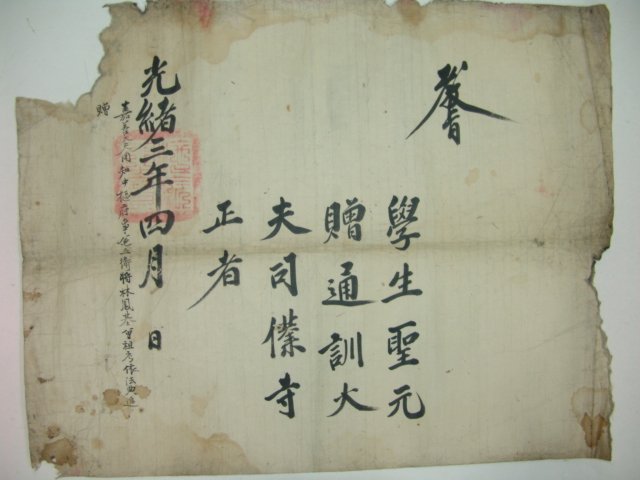 教旨
學生聖元
贈通訓大
夫司僕寺
正者
光緒三年四月 日
嘉善大夫同知中樞府事兼五衛將林鳳基曾祖考依法典追
贈